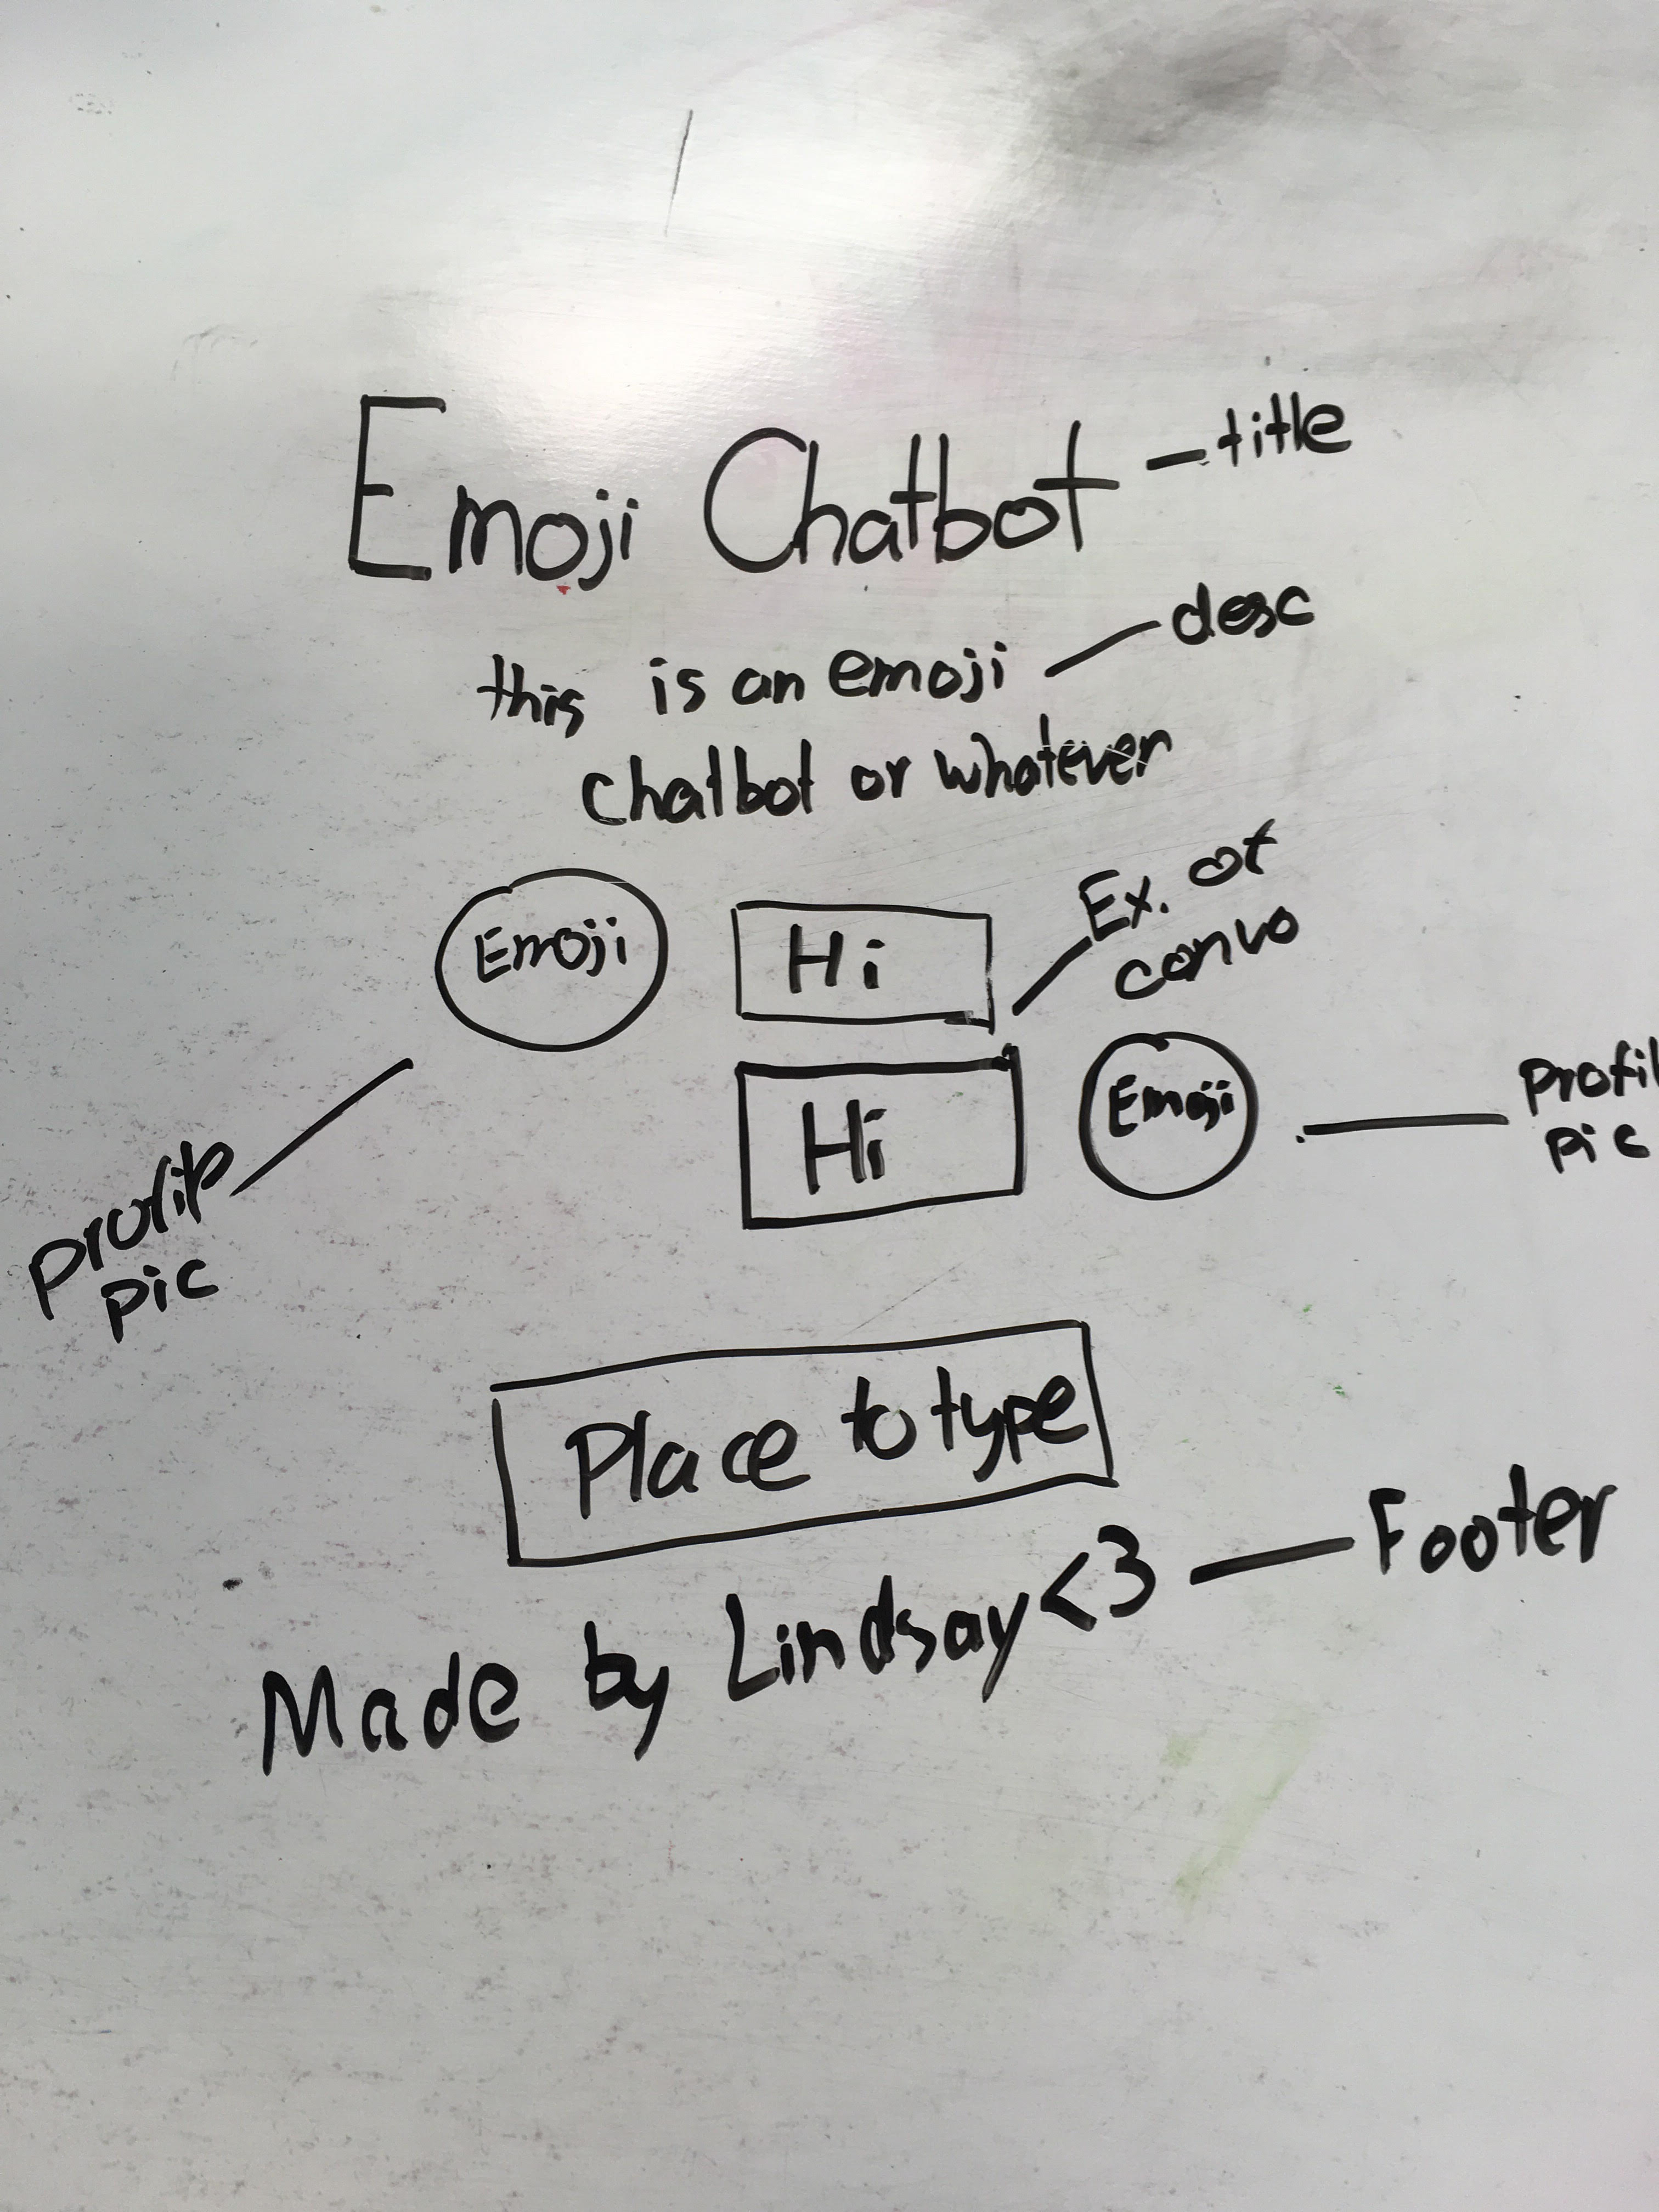 Emoji Chatbot - title
this is an emoji — desc
chatbot or whatever
Ex. of
convo
Emoji
Hi
Hi
Emoji
Profil
pic
profile
pic
Place to type
Made by Lindsay <3 — Footer